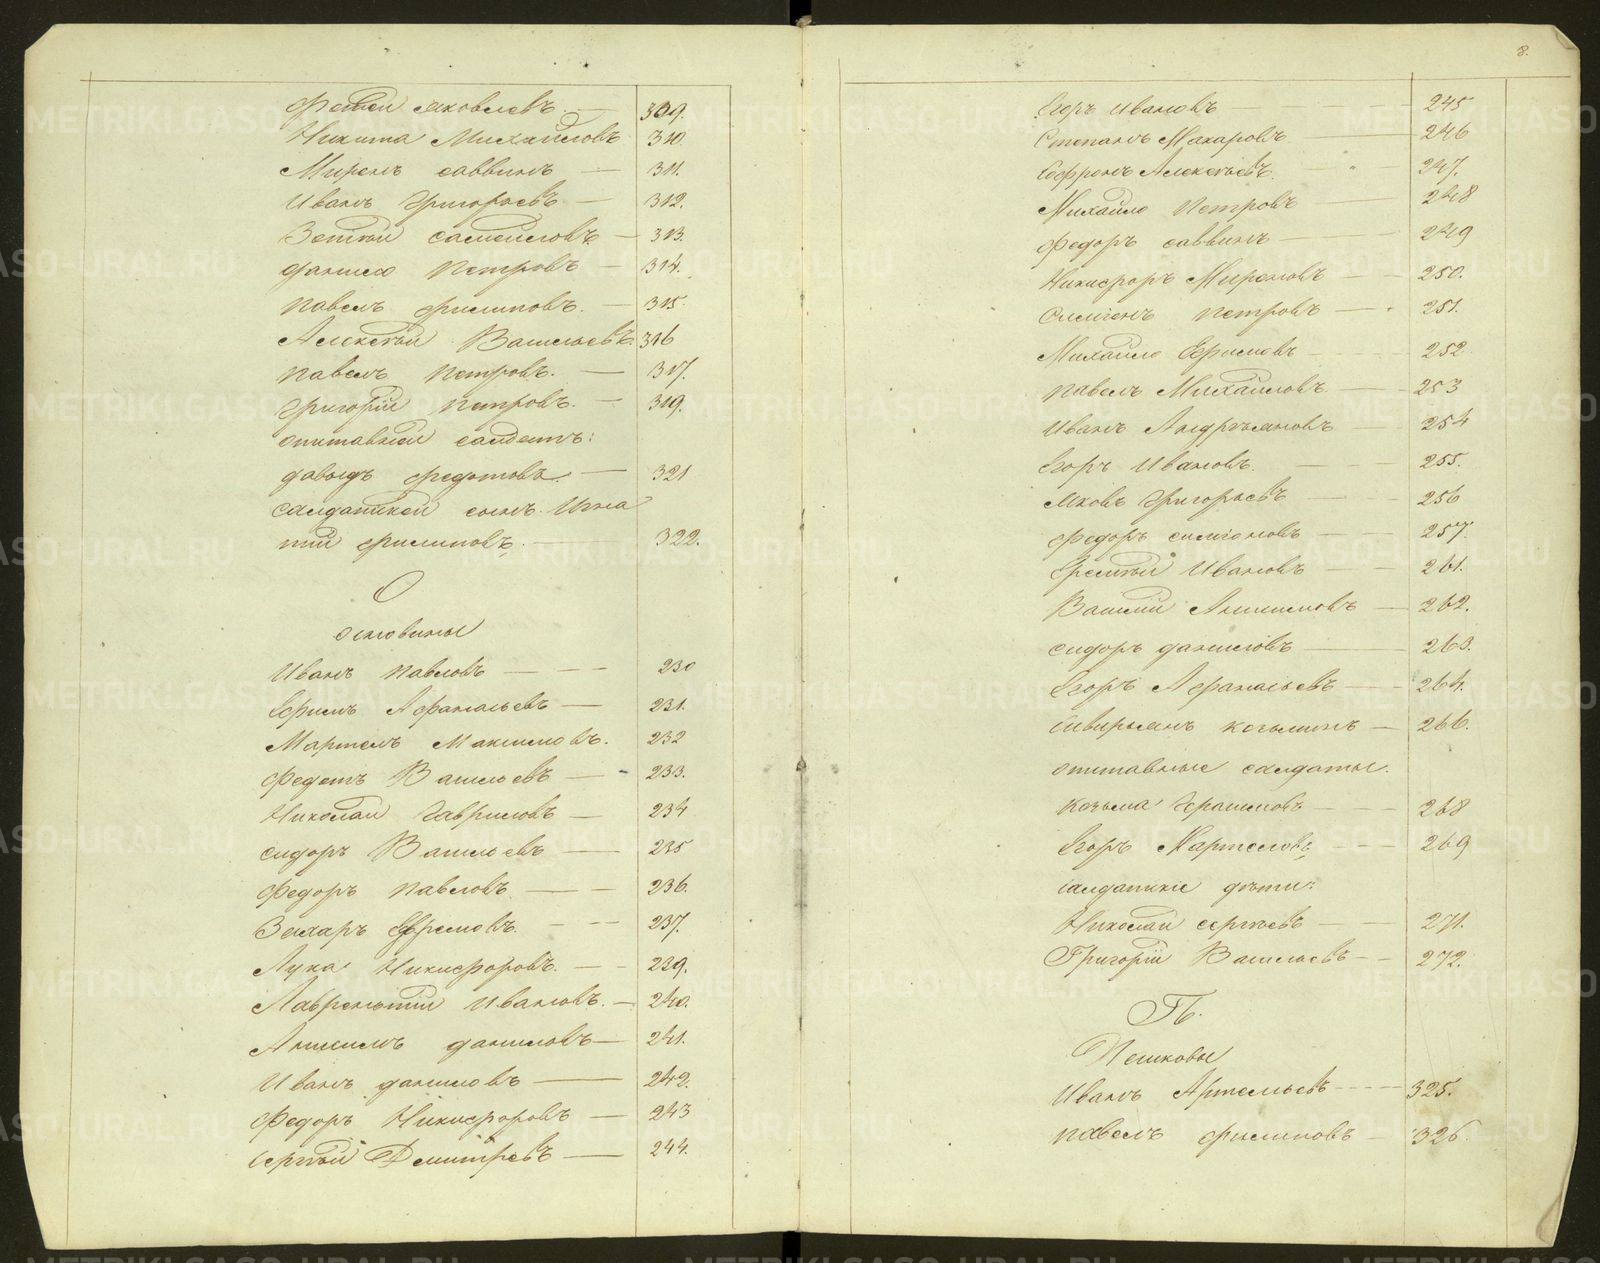 Фотей Яковлевъ — 309.
Никита Михайловъ 310.
Миронъ Саввинъ — 311.
Иванъ Григорьевъ — 312.
Зотей Самойловъ — 313.
Данило Петровъ — 314.
Павелъ Филиповъ. — 315.
Алексѣй Васильевъ 316
Павелъ Петровъ. — 317.
Григорій Петровъ. — 319.
Отставной салдатъ:
Давыдъ Федотовъ — 321
Салдатской сынъ Игна
тій Филиповъ. — 322.
О
Осиовины
Иванъ Павловъ — — — 230
Ефимъ Афанасьевъ — 231.
Мартемъ Максимовъ. 232
Федотъ Васильевъ — - 233.
Николай Гавриловъ — 234
Сидоръ Васильевъ — 235
Федоръ Павловъ. — — 236.
Захаръ Ефремовъ. - — 237.
Лука Никифоровъ. — - 239.
Лаврентій Ивановъ. — 240.
Анисимъ Даниловъ — 241.
Иванъ Даниловъ — 242.
Федоръ Никифоровъ — 243
Сергѣй Дмитревъ — 244.
8.
Егоръ Ивановъ 245
Степанъ Макаровъ 246
Софронъ Алексѣевъ. 247.
Михайло Петровъ 248
Федоръ Саввинъ — 249
Никифоръ Мироновъ — 250.
Симіонъ Петровъ — 251.
Михайло Ефимовъ 252
Павелъ Михайловъ — 253
Иванъ Андрѣяновъ — 254
Егоръ Ивановъ. — 255.
Яковъ Григорьевъ — 256
Федоръ Симіоновъ — 257.
Еремѣй Ивановъ — 261.
Василій Анисимовъ — 262.
Сидоръ Даниловъ — 263.
Егоръ Афанасьевъ — 264.
Сивирьянъ Козьминъ — 266.
Отставные салдаты.
Козьма Герасимовъ — 268
Егоръ Мартемовъ - - - 269
Салдатскіе дѣти:
Николай Сергѣевъ — 271.
Григорій Васильевъ — 272.
П.
Пешковы
Иванъ Артемьевъ - - - - 325.
Павелъ Филиповъ - - - 326.
METRIKI.GASO-URAL.RU